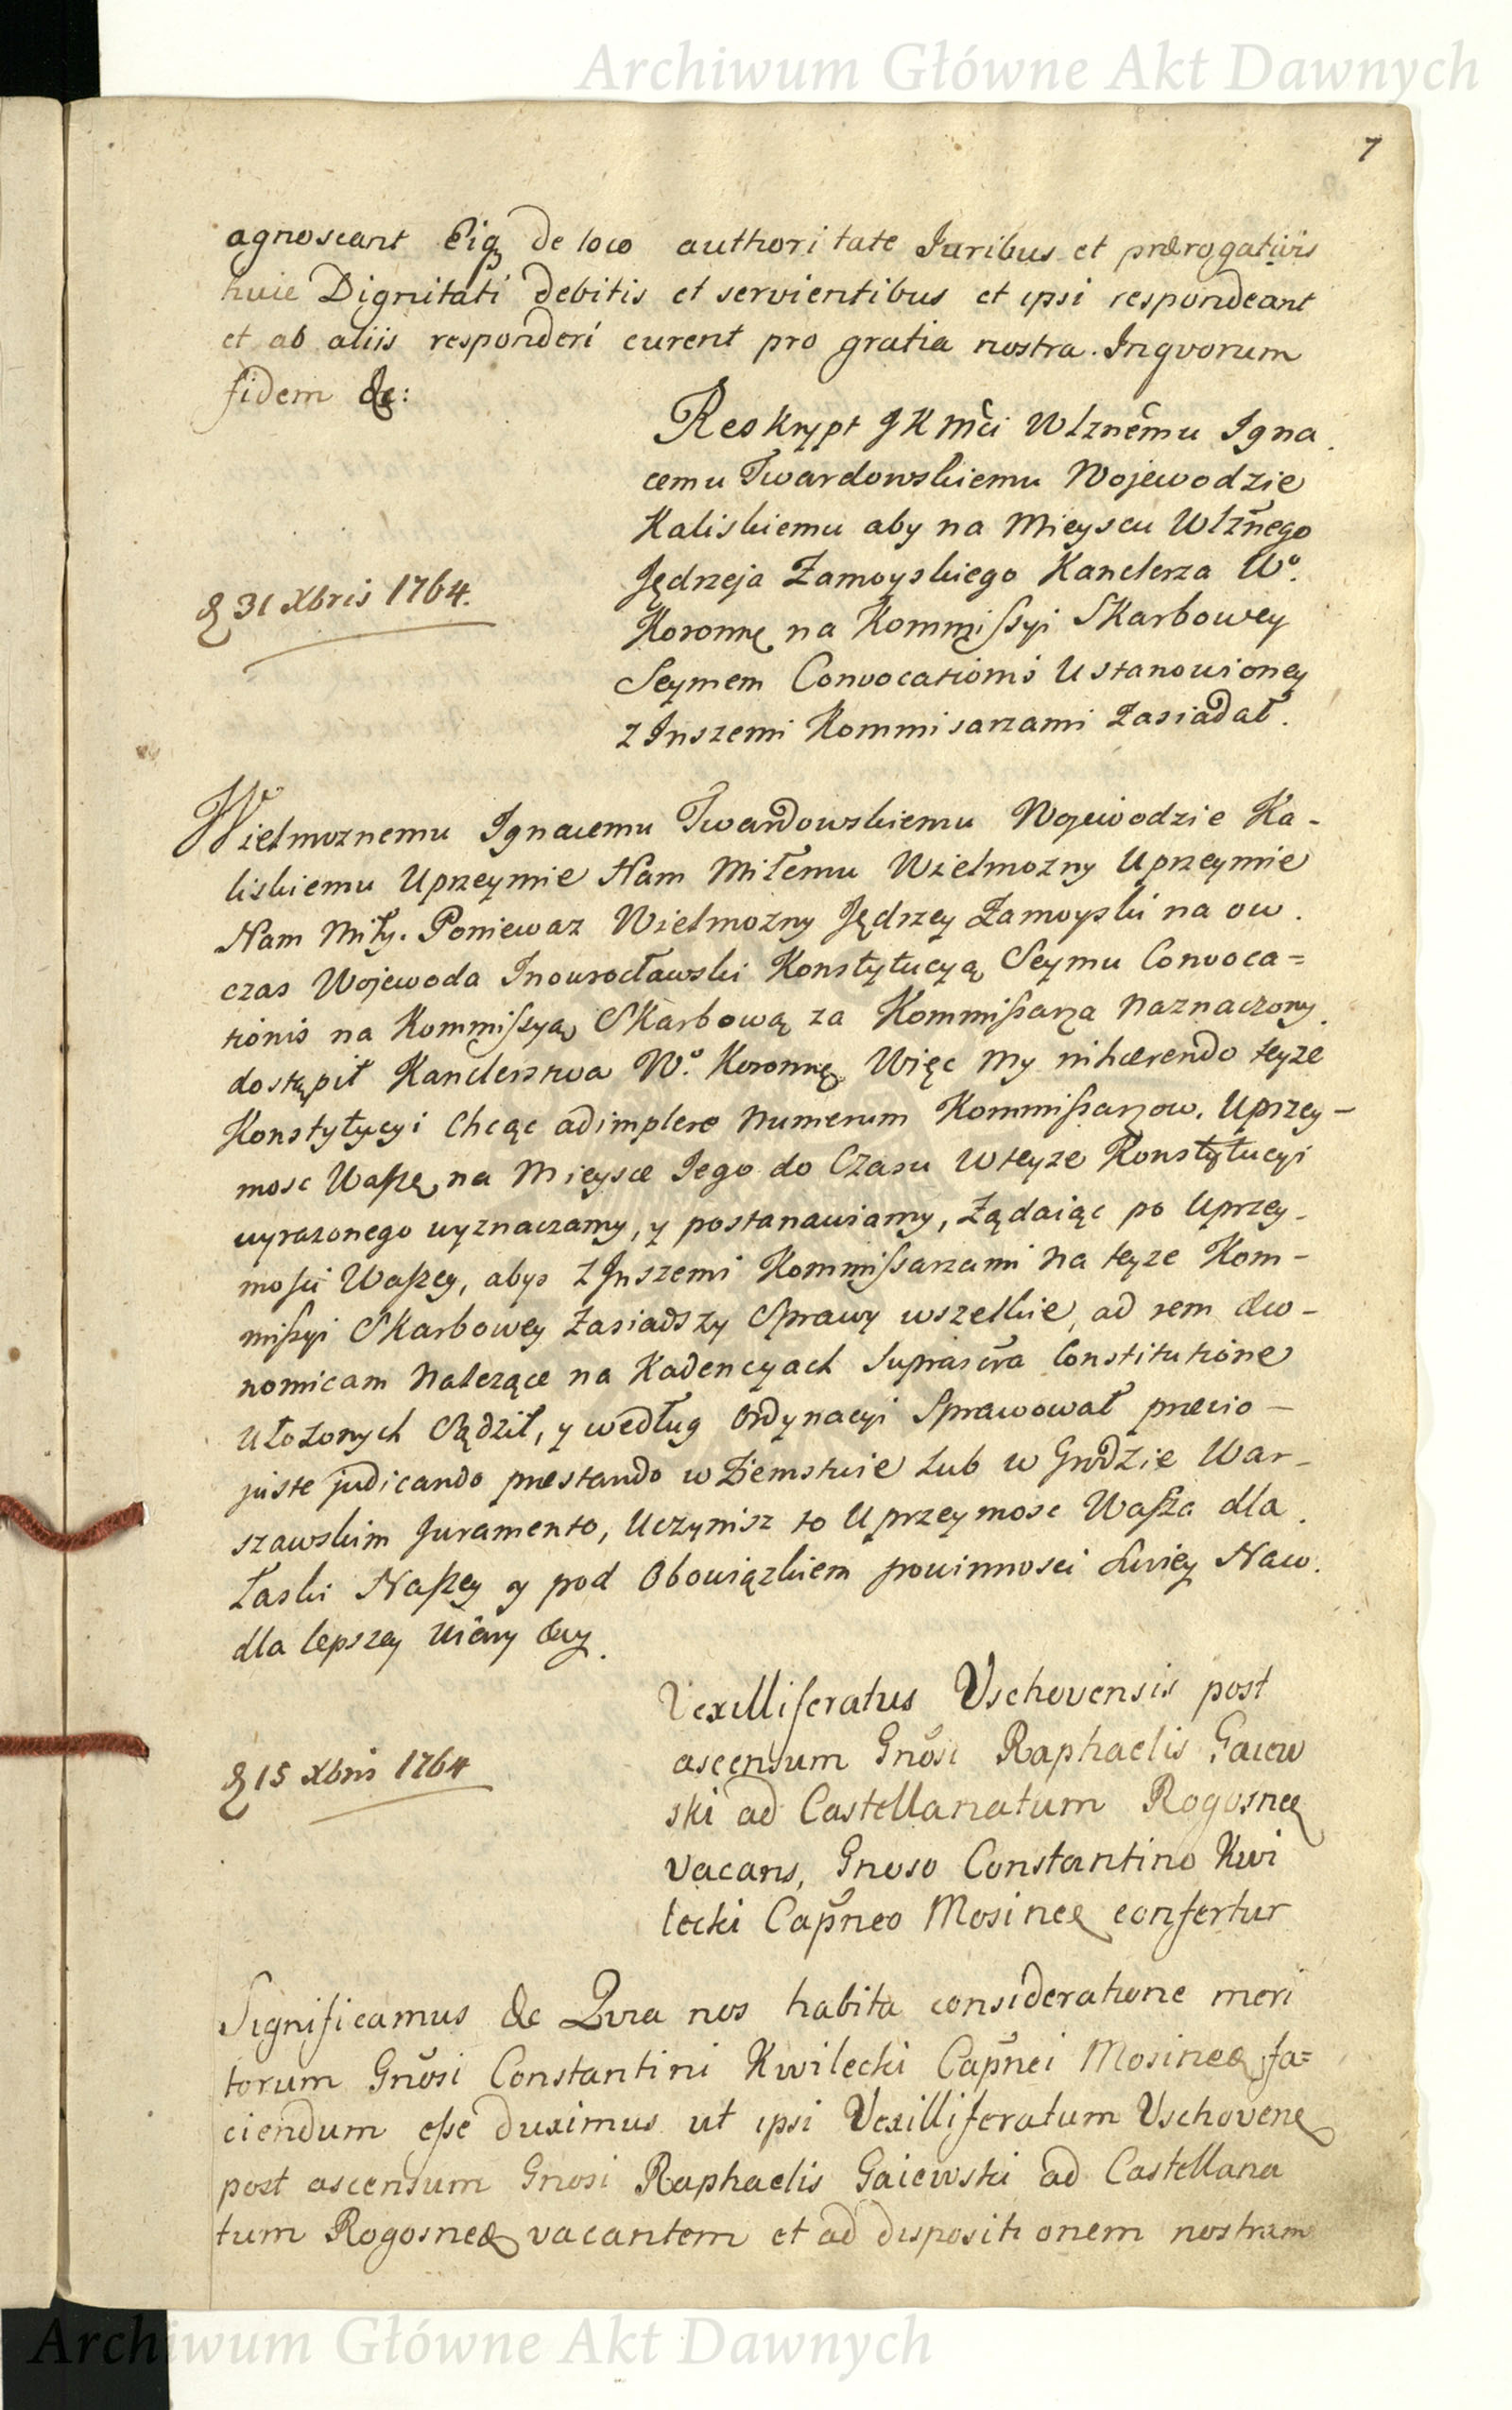 Archiwum Główne Akt Dawnych
7
agnoscant Eiq de loco authoritate Juribus et prærogativis
huic Dignitati debitis et servientibus et ipsi respondeant
et ab aliis responderi curent pro gratia nostra. Inqvorum
fidem &c:
Reskrypt JKMci Wlznemu Igna
cemu Twardowskiemu Wojewodzie
Kaliskiemu aby na Mieyscu Wlznego
Jędrzeja Zamoyskiego Kanclerza Wo.
d 31 Xbris 1764.
Koronnę na Kommissyi Skarbowey
Seymem Convocationis Ustanowioney
z Inszemi Kommisarzami Zasiadał.
Wielmoznemu Ignacemu Twardowskiemu Wojewodzie Ka-
liskiemu Uprzeymie Nam Miłemu Wielmozny Uprzeymie
Nam Miły. Poniewaz Wielmozny Jędrzey Zamoyski na ow.
czas Wojewoda Inowrocławski Konstytucyą Seymu Convoca=
tionis na Kommissyą Skarbową za Kommissarza Naznaczony
dostąpił Kanclerstwa Wo. Koronnę Więc My inhærendo teyze
Konstytycyi Chcąc adimplere Numerum Kommissarzow. Uprzey-
mosc Waszę na Mieysce Jego do Czasu Wteyze Konstytucyi
wyrazonego wyznaczamy, y postanawiamy, Żądaiąc po Uprzey-
mosci Waszey, abys z Inszemi Kommissarzami na teyze Kom-
missyi Skarbowey Zasiadszy Sprawy wszelkie, ad rem œco-
nomicam Nalezące na Kadencyach Suprascra Constitutione
Ułozonych Sądził, y według Ordynacyi Sprawował prævio-
juste judicando præstando w Ziemstwie Lub w Grodzie War-
szawskim Juramento, Uczynisz to Uprzeymosc Wasza dla
Łaski Naszey y pod Obowiązkiem powinnosci Swiey Naco.
dla lepszey Wiary &cy.
Vexilliferatus Vschovensis post
ascensum Gnosi Raphaelis Gaiew
d 15 Xbris 1764
ski ad Castellanatum Rogosnen
vacans, Gnoso Constantino Kwi
lecki Capneo Mosinen confertur
Significamus &c Qvia nos habita consideratione meri
torum Gnosi Constantini Kwilecki Capnei Mosinen fa=
ciendum esse duximus ut ipsi Vexilliferatum Vschoven
post ascensum Gnosi Raphaelis Gaiewski ad Castellana
tum Rogosnen vacantem et ad dispositionem nostram
Archiwum Główne Akt Dawnych